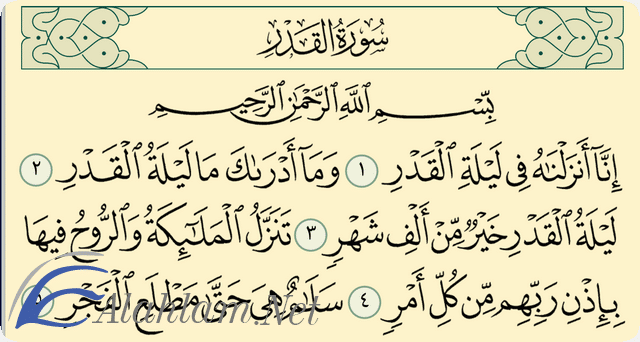 سُورَةُ القَدۡرِ
بِّسۡمِ ٱللَّهِ ٱلرَّحۡمَٰنِ ٱلرَّحِيمِ
إِنَّآ أَنزَلۡنَٰهُ فِي لَيۡلَةِ ٱلۡقَدۡرِ ١ وَمَآ أَدۡرَىٰكَ مَا لَيۡلَةُ ٱلۡقَدۡرِ ٢
لَيۡلَةُ ٱلۡقَدۡرِ خَيۡرٞ مِّنۡ أَلۡفِ شَهۡرٖ ٣ تَنَزَّلُ ٱلۡمَلَٰٓئِكَةُ وَٱلرُّوحُ فِيهَا
بِإِذۡنِ رَبِّهِم مِّن كُلِّ أَمۡرٖ ٤ سَلَٰمٌ هِيَ حَتَّىٰ مَطۡلَعِ ٱلۡفَجۡرِ ٥
Alahlam.Net